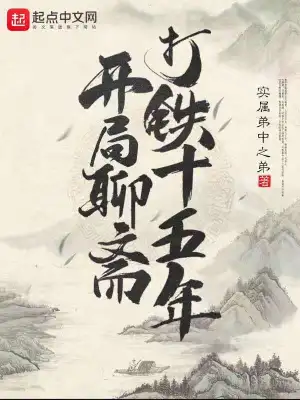 起点
起点中文网
阅文集团旗下网站
打铁十五年
开局聊斋
实属弟中之弟 著